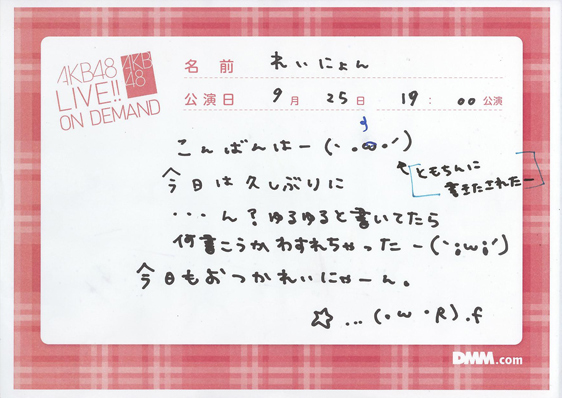 AKB48
LIVE!!
ON DEMAND
AKB
48
名前 れいにょん
公演日 9月 25日 19:00公演
こんばんはー(`・ω・´)
ともちんに
書きたされたー
今日は久しぶりに
・・・ん?ゆるゆると書いてたら
何書こうかわすれちゃったー(`;ω;´)
今日もおつかれいにゃーん。
☆...(・ω・R).f
DMM.com